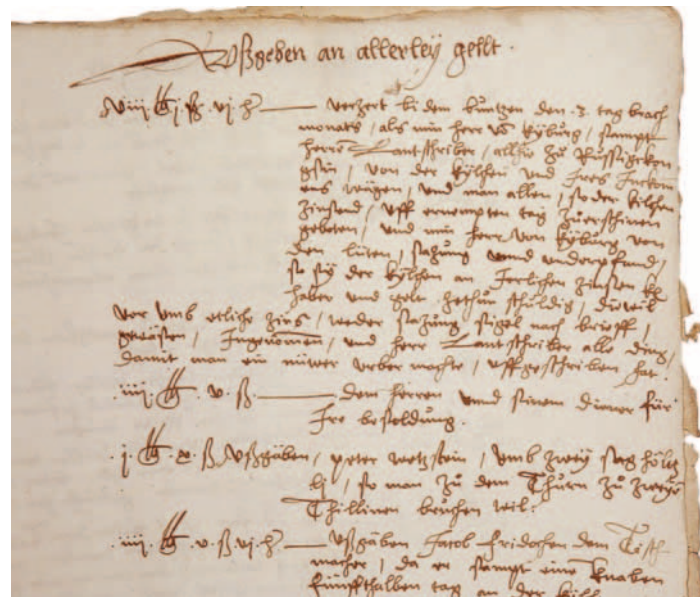 Vßgeben an allerleÿ gellt.
viij. lb j. ß. vj. h verzert bi dem kuͦntzen den .3. tag brach
monats / als min herr vō Kyburg / sampt
herrē Lantschriber / allhie zuͦ Russigkon
gsin / von der kylchen und Jres Jnkom
ens wägen / vnd man allen / so der kilchen
zinsend / vff ernempten tag zuͦerschinen
geboten / vnd min herr von Kyburg von
den lüten / satzung vnnd vnderpfand /
so sÿ der kylchen an Jerlichen zinsen kē
haber vnd gelt zethuͦn schuldig / diewil
vor vmb etliche zins / weder satzung sigel nach brieff /
gewäsen / Jngenomen / vnd herr Lantschriber alle ding /
damit man ein nüwer vrber machte / vffgeschriben hat.
iiij. lb. v. ß. dem herren vnnd sinem diener für
Jre besoldung.
j. lb. x. ß vßgäben / peter wetzstein / vmb zweÿ sag höltz
li / so man zuͦ dem Thurn zuͦ zweÿē
Thillinen bruchen wil.
iiij. lb. v. ß vj. h vßgäben Jacob fridschen dem Tisch
macher / da er sampt einē knaben
fünffthalben tag an der kyll